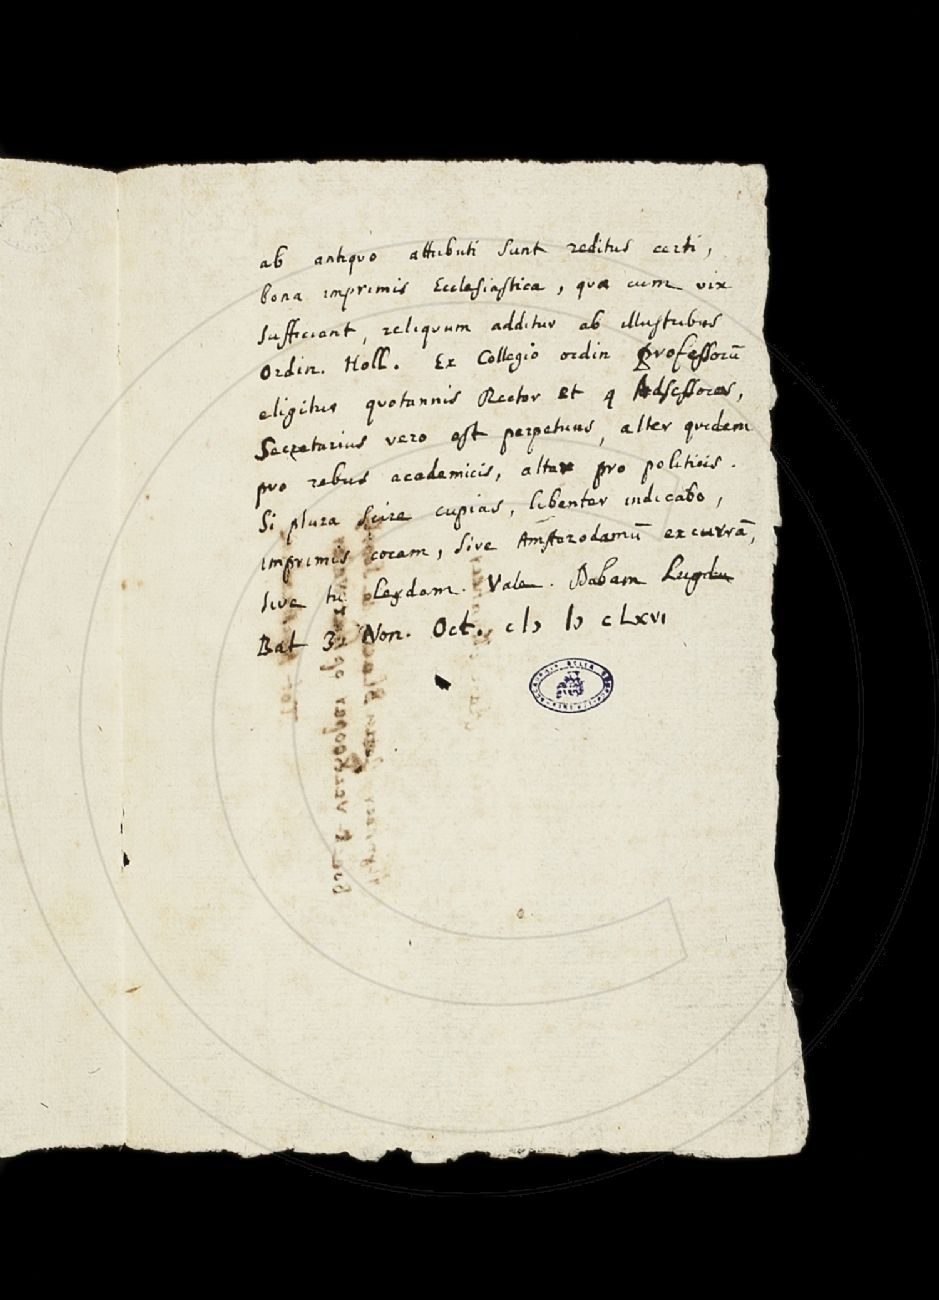 ab antiquo attributi sunt reditus certi,
bona imprimis Ecclesiastica, quæ cum vix
sufficiant, reliquum additur ab illustribus
Ordin. Holl. Ex Collegio ordin professorū
eligitur quotannis Rector et 4 Adsessores,
Secretarius vero est perpetuus, alter quidem
pro rebus academicis, alter pro politicis.
Si plura scire cupias, libenter indicabo,
imprimis coram, sive Amsterodamū excurrā,
sive tu Leydam. Vale. Dabam Lugdu
Bat 3. Non. Oct. cIↄ Iↄ cLxvı